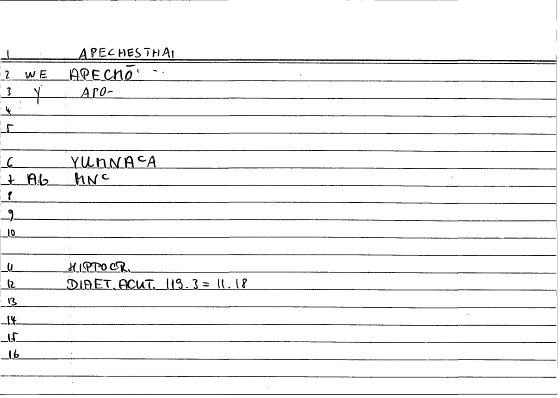 1 APECHESTHAI
2 WE APECHŌ
3 Y APO-
4
5
6 YUMNAᶜA
7 AG MNᶜ
8
9
10
11 HIPPOCR.
12 DIAET. ACUT. 119.3 = 11.18
13
14
15
16